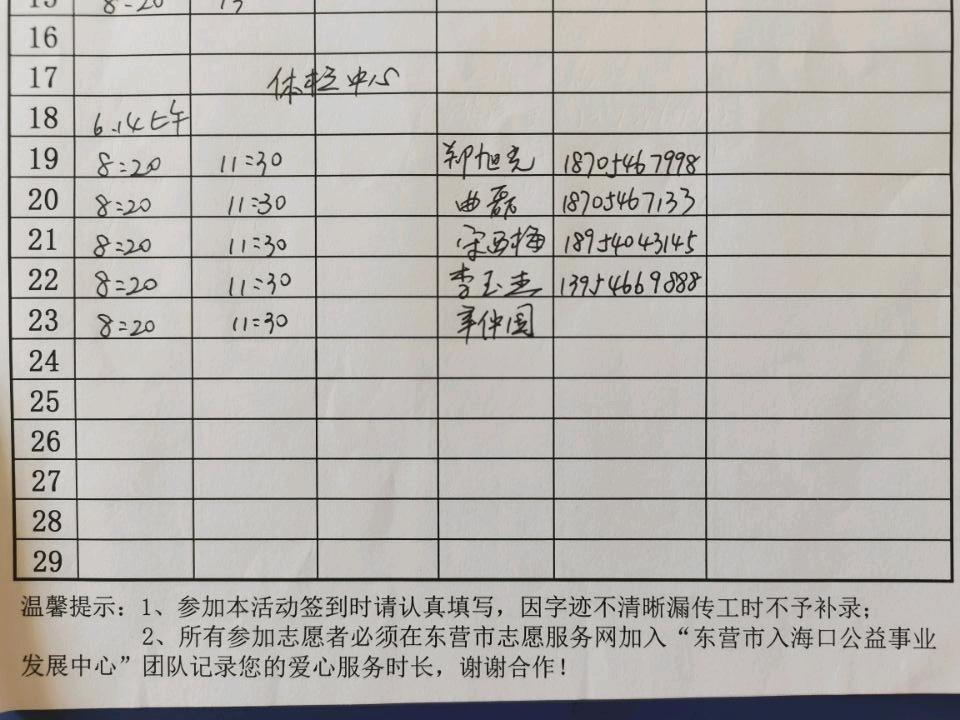 15 8:20
16
17 体检中心
18 6.14上午
19 8:20 11:30 郑旭光 18705467998
20 8:20 11:30 曲磊 18705467133
21 8:20 11:30 宋西梅 18954043145
22 8:20 11:30 李玉杰 13954669888
23 8:20 11:30
24
25
26
27
28
29
温馨提示：1、参加本活动签到时请认真填写，因字迹不清晰漏传工时不予补录；
2、所有参加志愿者必须在东营市志愿服务网加入“东营市入海口公益事业
发展中心”团队记录您的爱心服务时长，谢谢合作！